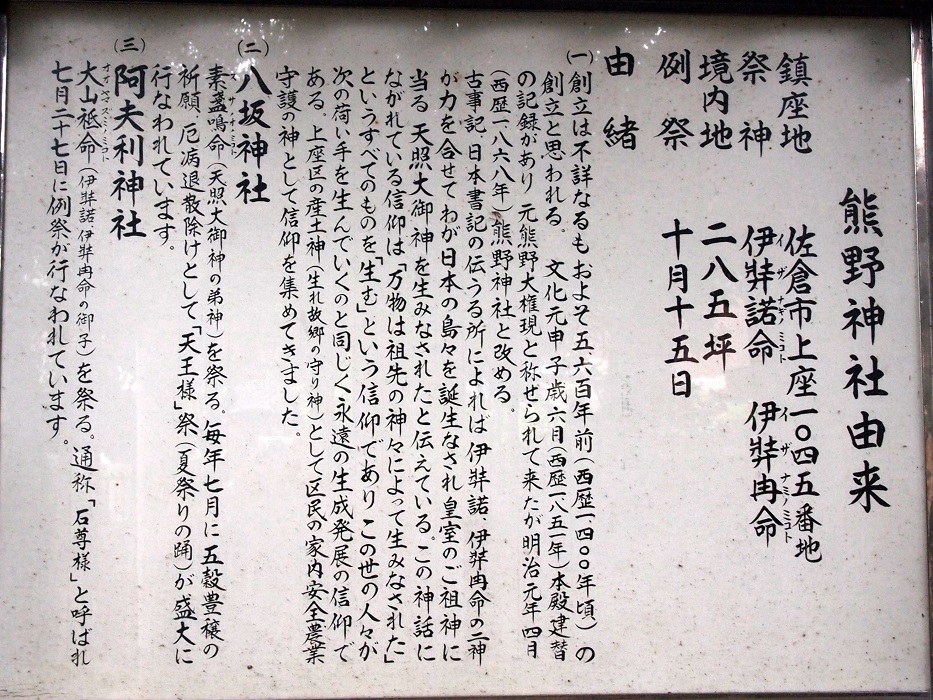 熊野神社由来
鎮座地 佐倉市上座一〇四五番地
祭神 伊弉諾命 伊弉冉命
イザナギノミコト イザナミノミコト
境内地 二八五坪
例祭 十月十五日
由緒
(一)創立は不詳なるも およそ五、六百年前(西歴一、四〇〇年頃)の
創立と思われる。 文化元申子歳六月(西歴一八五一年)本殿建替
の記録があり 元熊野大権現と称せられて来たが明治元年四月
(西歴一八六八年)熊野神社と改める。
古事記、日本書記の伝うる所によれば 伊弉諾、伊弉冉命の二神
が力を合せてわが日本の島々を誕生なされ皇室のご祖神に
当る 天照大御神を生みなされたと伝えている。この神話に
ながれている信仰は「万物は祖先の神々によって生みなされた」
というすべてのものを「生む」という信仰であり この世の人々が
次の荷い手を生んでいくのと同じく永遠の生成発展の信仰で
ある 上座区の産土神(生れ故郷の守り神)として区民の家内安全農業
守護の神として信仰を集めてきました。
(二)八坂神社
スサノオノミコト
素盞鳴命(天照大御神の弟神)を祭る。毎年七月に五穀豊穣の
祈願 厄病退散除けとして「天王様」祭(夏祭りの踊)が盛大に
行なわれています。
(三)阿夫利神社
オオヤマズミノミコト
大山祇命(伊弉諾 伊弉冉命の御子)を祭る。通称「石尊様」と呼ばれ
七月二十七日に例祭が行なわれています。